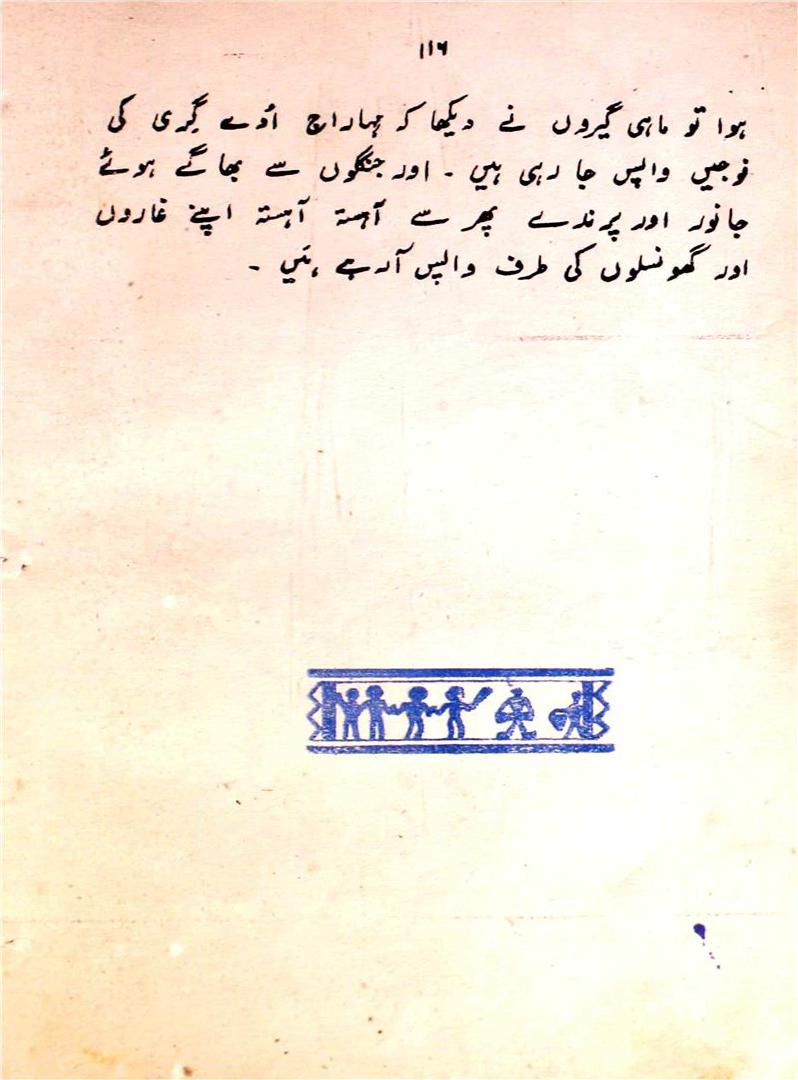 ۱۱۶
ہوا تو ماہی گیروں نے دیکھا کہ مہاراج اُدے گِری کی
فوجیں واپس جا رہی ہیں ۔ اور جنگلوں سے بھاگے ہوئے
جانور اور پرندے پھر سے آہستہ آہستہ اپنے غاروں
اور گھونسلوں کی طرف واپس آ رہے ہیں ۔